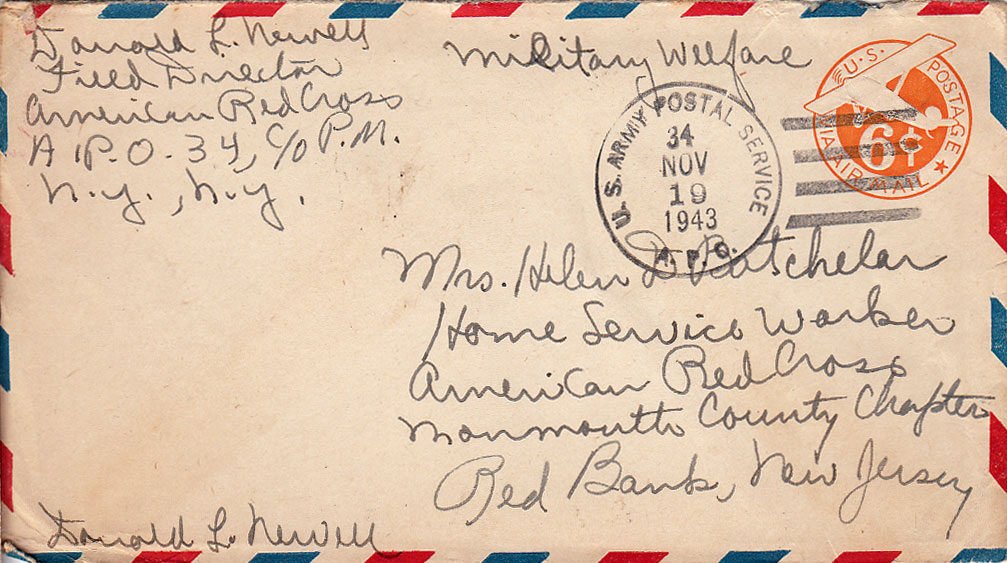 Donald L. Newell
Field Director
American Red Cross
A.P.O. 34, c/o P.M.
N.Y., N.Y.
Military Welfare
U.S. ARMY POSTAL SERVICE
34
NOV
19
1943
A.P.O.
U.S. POSTAGE
6¢
VIA AIR MAIL
Mrs. Helen D. Batchelar
Home Service Worker
American Red Cross
Monmouth County Chapter
Red Bank, New Jersey
Donald L. Newell